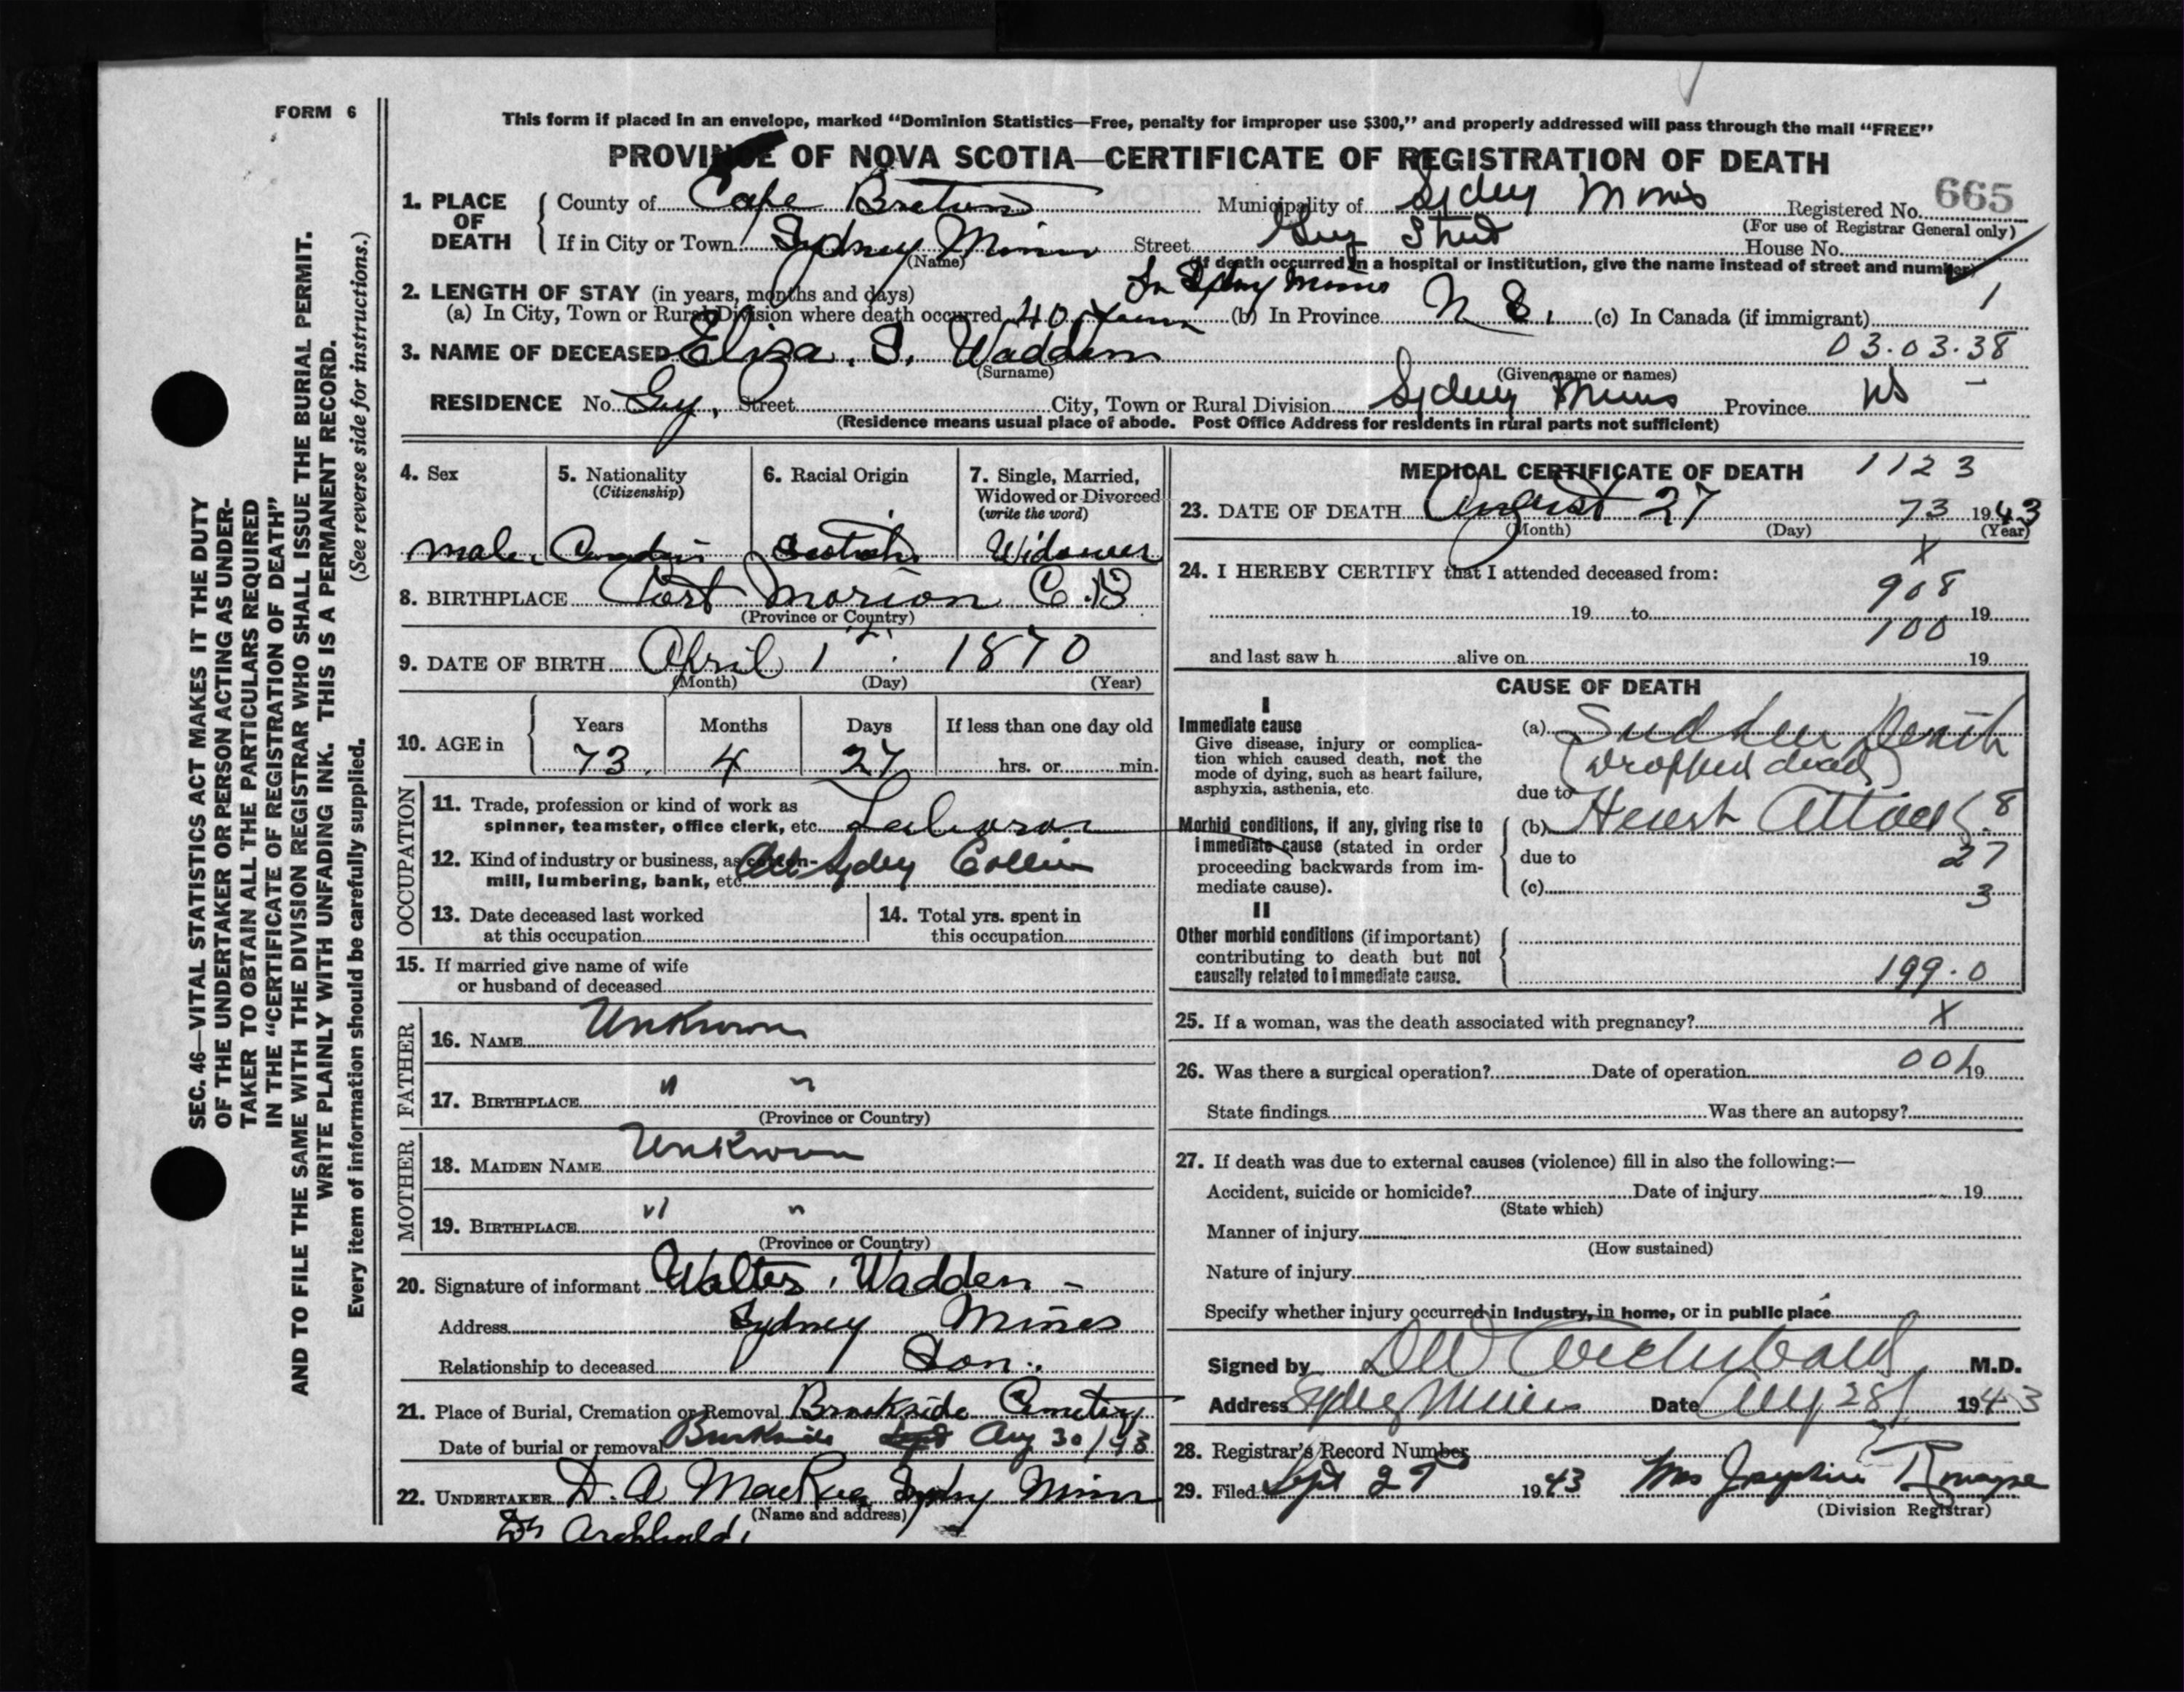 FORM 6
This form if placed in an envelope, marked "Dominion Statistics—Free, penalty for improper use $300," and properly addressed will pass through the mail "FREE"
PROVINCE OF NOVA SCOTIA—CERTIFICATE OF REGISTRATION OF DEATH
665
1. PLACE OF DEATH
County of Cape Breton Municipality of Sydney Mines Registered No.
(For use of Registrar General only)
If in City or Town Sydney Mines Street Guy Street House No.
(Name) (If death occurred in a hospital or institution, give the name instead of street and number)
2. LENGTH OF STAY (in years, months and days) In Sydney Mines 1
(a) In City, Town or Rural Division where death occurred 40 years (b) In Province N S. (c) In Canada (if immigrant)
3. NAME OF DECEASED Eliza. S. Wadden 03.03.38
(Surname) (Given name or names)
RESIDENCE No. Guy, Street City, Town or Rural Division Sydney Mines Province NS –
(Residence means usual place of abode. Post Office Address for residents in rural parts not sufficient)
4. Sex
male
5. Nationality
(Citizenship)
Canadian
6. Racial Origin
Scotish
7. Single, Married,
Widowed or Divorced
(write the word)
Widower
8. BIRTHPLACE Port Morion C.B
(Province or Country)
9. DATE OF BIRTH April 1 1870
(Month) (Day) (Year)
10. AGE in
Years Months Days If less than one day old
73 4 27 hrs. or min.
OCCUPATION
11. Trade, profession or kind of work as
spinner, teamster, office clerk, etc. Laboror
12. Kind of industry or business, as cotton-
mill, lumbering, bank, etc. At Sydney
13. Date deceased last worked
at this occupation
14. Total yrs. spent in
this occupation
15. If married give name of wife
or husband of deceased
FATHER
16. NAME Unknown
17. BIRTHPLACE " "
(Province or Country)
MOTHER
18. MAIDEN NAME Unknown
19. BIRTHPLACE " "
(Province or Country)
20. Signature of informant Walter Wadden -
Address Sydney Mines
Relationship to deceased Son.
21. Place of Burial, Cremation or Removal Brookside Cemetery
Date of burial or removal Aug 30/43
22. UNDERTAKER D. A. MacRae Sydney Mines
(Name and address)
Dr Archbald
MEDICAL CERTIFICATE OF DEATH 1123
23. DATE OF DEATH August 27 73 1943
(Month) (Day) (Year)
24. I HEREBY CERTIFY that I attended deceased from: X
908
19 to 19
100
and last saw h alive on 19
CAUSE OF DEATH
I
Immediate cause
Give disease, injury or complica-
tion which caused death, not the
mode of dying, such as heart failure,
asphyxia, asthenia, etc.
(a) Sudden Death
(Dropped dead)
due to
Morbid conditions, if any, giving rise to
immediate cause (stated in order
proceeding backwards from im-
mediate cause).
(b) Heart Attack 8
due to 27
(c) 3
II
Other morbid conditions (if important)
contributing to death but not
causally related to immediate cause.
199.0
25. If a woman, was the death associated with pregnancy? X
26. Was there a surgical operation? Date of operation 19
State findings Was there an autopsy?
27. If death was due to external causes (violence) fill in also the following:—
Accident, suicide or homicide? Date of injury 19
(State which)
Manner of injury
(How sustained)
Nature of injury
Specify whether injury occurred in Industry, in home, or in public place
Signed by DW Archibald M.D.
Address Sydney Mines Date Aug 28/ 1943
28. Registrar's Record Number
29. Filed Sept 27 1943 Mrs Josephine Romayne
(Division Registrar)
SEC. 46—VITAL STATISTICS ACT MAKES IT THE DUTY
OF THE UNDERTAKER OR PERSON ACTING AS UNDER-
TAKER TO OBTAIN ALL THE PARTICULARS REQUIRED
IN THE "CERTIFICATE OF REGISTRATION OF DEATH"
AND TO FILE THE SAME WITH THE DIVISION REGISTRAR WHO SHALL ISSUE THE BURIAL PERMIT.
WRITE PLAINLY WITH UNFADING INK. THIS IS A PERMANENT RECORD.
Every item of information should be carefully supplied. (See reverse side for instructions.)